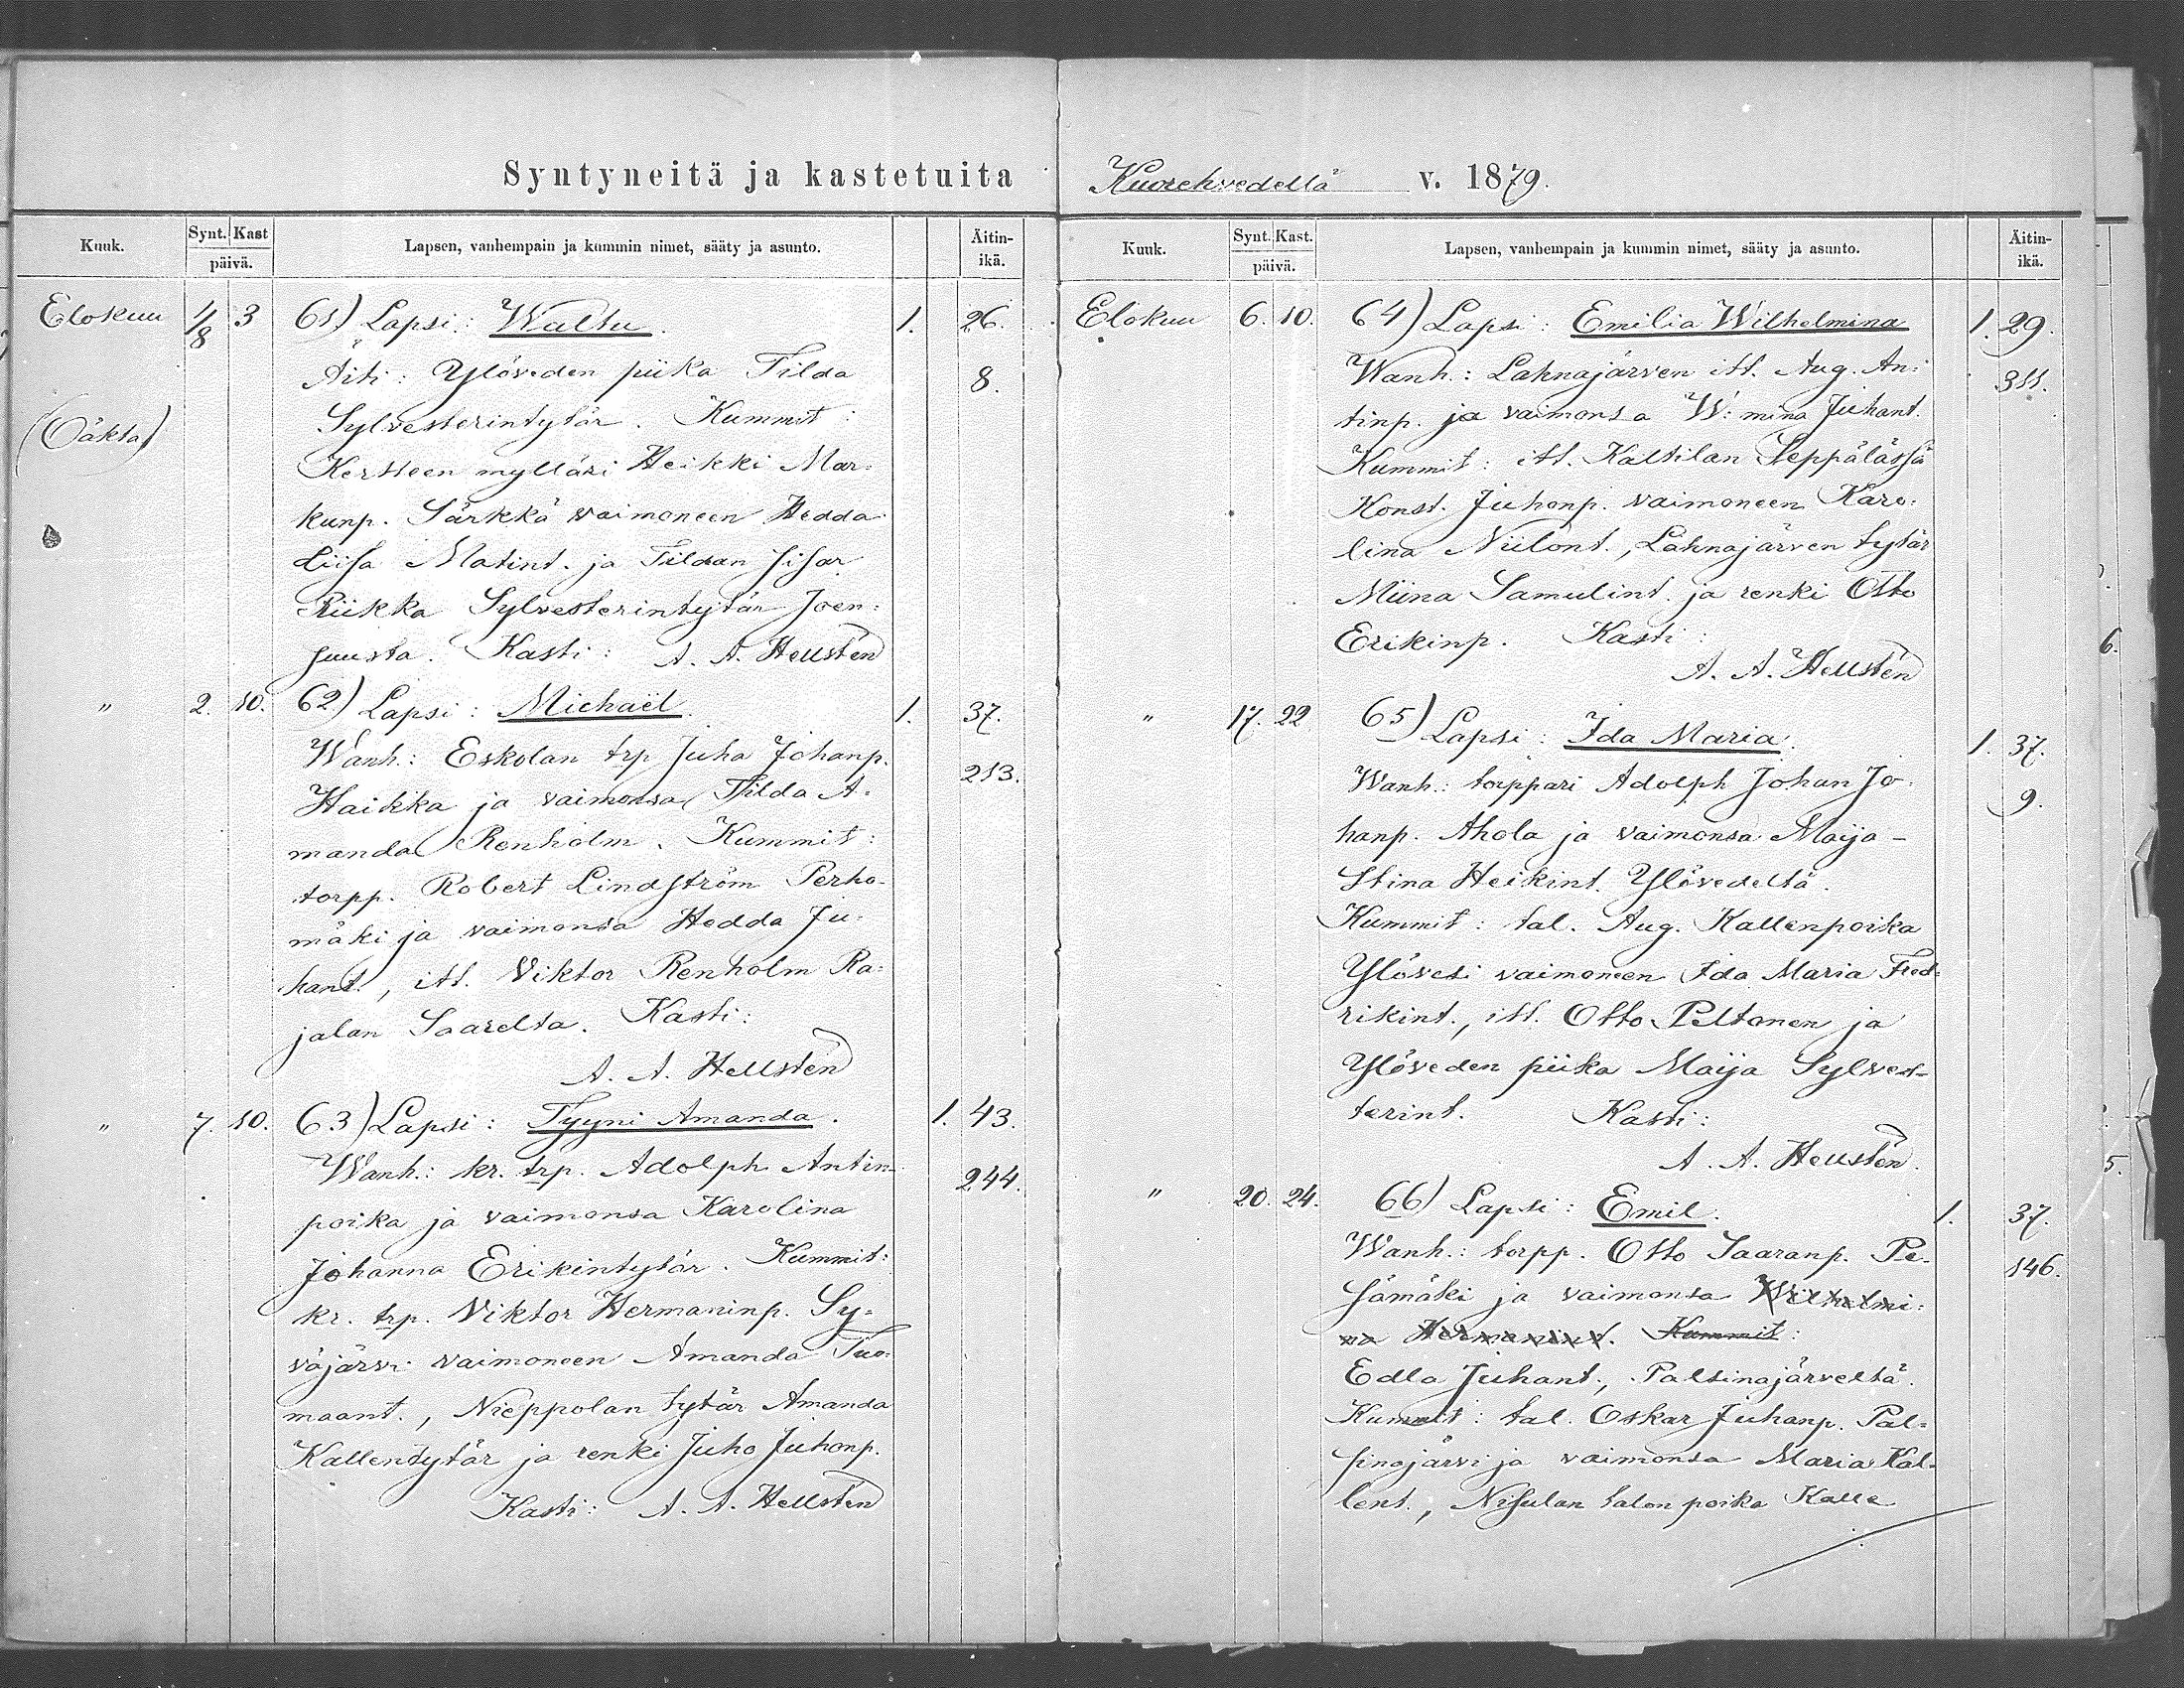 Syntyneitä ja kastetuita
Kuuk. Synt. Kast päivä. Lapsen, vanhempain ja kummin nimet, sääty ja asunto. Äitin-ikä.
Elokuu 1/8 3 61) Lapsi: Waltu. 1. 26.
Äiti: Ylöveden piika Tilda 8.
(Oäkta) Sylvesterintytär. Kummit:
Kertteen mylläri Heikki Mar-
kunp. Särkkä vaimoneen Hedda
Liisa Matint. ja Tildan sisar
Riikka Sylvesterintytär Joen-
suusta. Kasti: A. A. Hellstén
" 2. 10. 62) Lapsi: Michaël. 1. 37.
Wanh.: Eskolan trp Juha Johanp. 213.
Haikka ja vaimonsa Tilda A-
manda Renholm. Kummit:
torpp. Robert Lindström Perho-
mäki ja vaimonsa Hedda Ju-
hant., itt. Viktor Renholm Ra-
jalan Saarelta. Kasti:
A. A. Hellstén
" 7. 10. 63) Lapsi: Tyyni Amanda. 1. 43.
Wanh.: kr. trp. Adolph Antin- 244.
poika ja vaimonsa Karolina
Johanna Erikintytär. Kummit:
kr. trp. Viktor Hermaninp. Sy-
väjärvi vaimoneen Amanda Tuo-
maant., Nieppolan tytär Amanda
Kallentytär ja renki Juho Juhonp.
Kasti: A. A. Hellstén
Kuorehvedellä v. 1879.
Kuuk. Synt. Kast. päivä. Lapsen, vanhempain ja kummin nimet, sääty ja asunto. Äitin-ikä.
Elokuu 6. 10. 64) Lapsi: Emilia Wilhelmina 1. 29.
Wanh.: Lahnajärven itt. Aug. An- 311.
tinp. ja vaimonsa W:mina Juhant.
Kummit: itt. Kaltilan Seppälässä
Konst. Juhonp. vaimoneen Karo-
lina Niilont., Lahnajärven tytär
Miina Samulint. ja renki Otto
Erikinp. Kasti:
A. A. Hellstén
" 17. 22 65) Lapsi: Ida Maria. 1. 37.
Wanh.: torppari Adolph Johan Jo- 9.
hanp. Ahola ja vaimonsa Maija-
Stina Heikint. Ylövedeltä.
Kummit: tal. Aug. Kallenpoika
Ylövesi vaimoneen Ida Maria Fred-
rikint., itt. Otto Peltonen ja
Ylöveden piika Maija Sylves-
terint. Kasti:
A. A. Hellstén.
" 20. 24. 66) Lapsi: Emil. 1. 37.
Wanh.: torpp. Otto Saaranp. Pe- 146.
sämäki ja vaimonsa Wilhelmi-
na Hermanint. Kummit:
Edla Juhant., Palsinajärveltä.
Kummit: tal. Oskar Juhanp. Pal-
sinajärvi ja vaimonsa Maria Kal-
lent., Nisulan talon poika Kalle
6.
5.